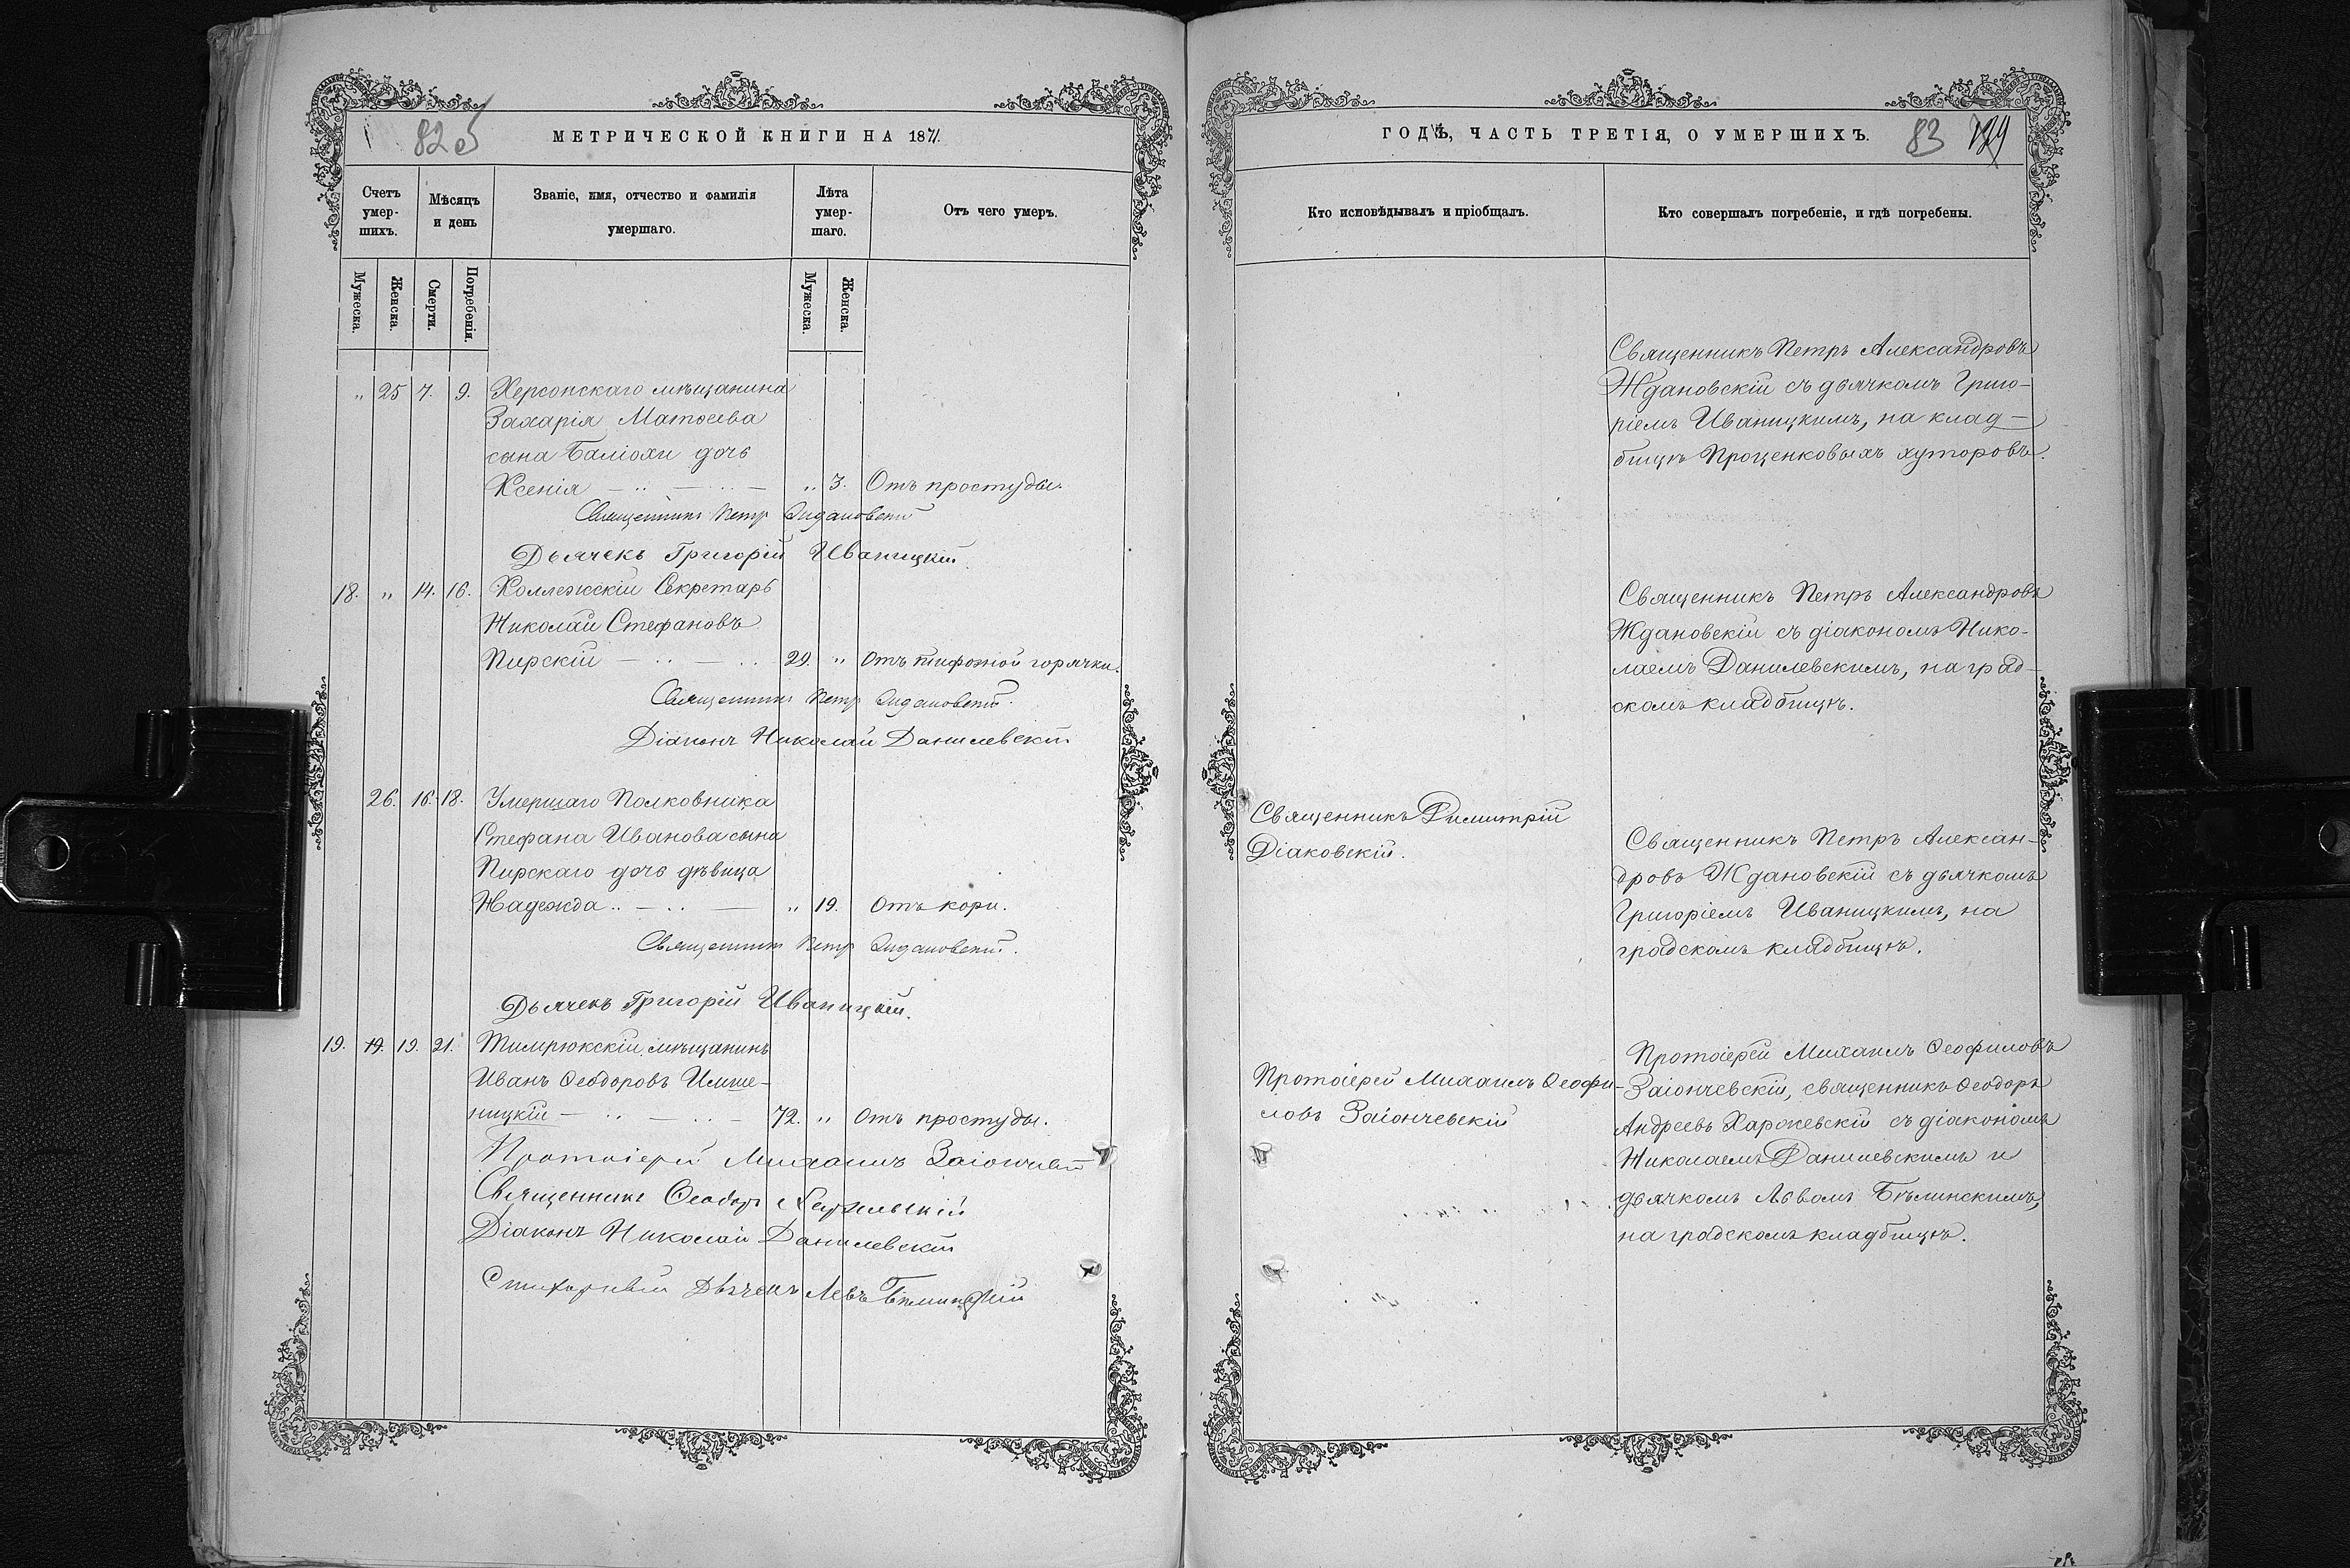 82 об
МЕТРИЧЕСКОЙ КНИГИ НА 1871.
Счетъ умер-шихъ.
Мѣсяцъ и день
Званіе, имя, отчество и фамилія умершаго.
Лѣта умер-шаго.
Отъ чего умеръ.
Мужеска. Женска. Смерти. Погребенія. Мужеска. Женска.
„ 25 7. 9. Херсонскаго мѣщанина
Захарія Матѳеева
сына Баліохи дочь
Ксенія „ 3. Отъ простуды.
Священникъ Петръ Ждановскій
Дьячекъ Григорій Иваницкій.
18. „ 14. 16. Коллежскій Секретарь
Николай Стефановъ
Пирскій 29. „ Отъ тифозной горячки.
Священникъ Петръ Ждановскій.
Діаконъ Николай Данилевскій
26. 16. 18. Умершаго Полковника
Стефана Иванова сына
Пирскаго дочь дѣвица
Надежда „ 19. Отъ кори.
Священникъ Петръ Ждановскій.
Дьячекъ Григорій Иваницкій.
19. 19. 19. 21. Тимрюкскій мѣщанинъ
Иванъ Ѳеодоровъ
ницкій 72. „ Отъ простуды.
Протоіерей Михаилъ
Священникъ Ѳеодоръ
Діаконъ Николай Данилевскій
Стихарный Дьячекъ Левъ Бѣлинскій
ГОДѢ, ЧАСТЬ ТРЕТІЯ, О УМЕРШИХЪ.
83
Кто исповѣдывалъ и пріобщалъ.
Кто совершалъ погребеніе, и гдѣ погребены.
Священникъ Петръ Александровъ
Ждановскій съ дьячкомъ Григо-
ріемъ Иваницкимъ, на клад-
бищѣ Проценковыхъ хуторовъ.
Священникъ Петръ Александровъ
Ждановскій съ діакономъ Нико-
лаемъ Данилевскимъ, на град-
скомъ кладбищѣ.
Священникъ Димитрій
Діаковскій.
Священникъ Петръ Алексан-
дровъ Ждановскій съ дьячкомъ
Григоріемъ Иваницкимъ, на
градскомъ кладбищѣ.
Протоіерей Михаилъ Ѳеофи-
ловъ Заіончевскій
Протоіерей Михаилъ Ѳеофиловъ
Заіончевскій, священникъ Ѳеодоръ
Андреевъ съ діакономъ
Николаемъ Данилевскимъ и
дьячкомъ Львомъ Бѣлинскимъ,
на градскомъ кладбищѣ.